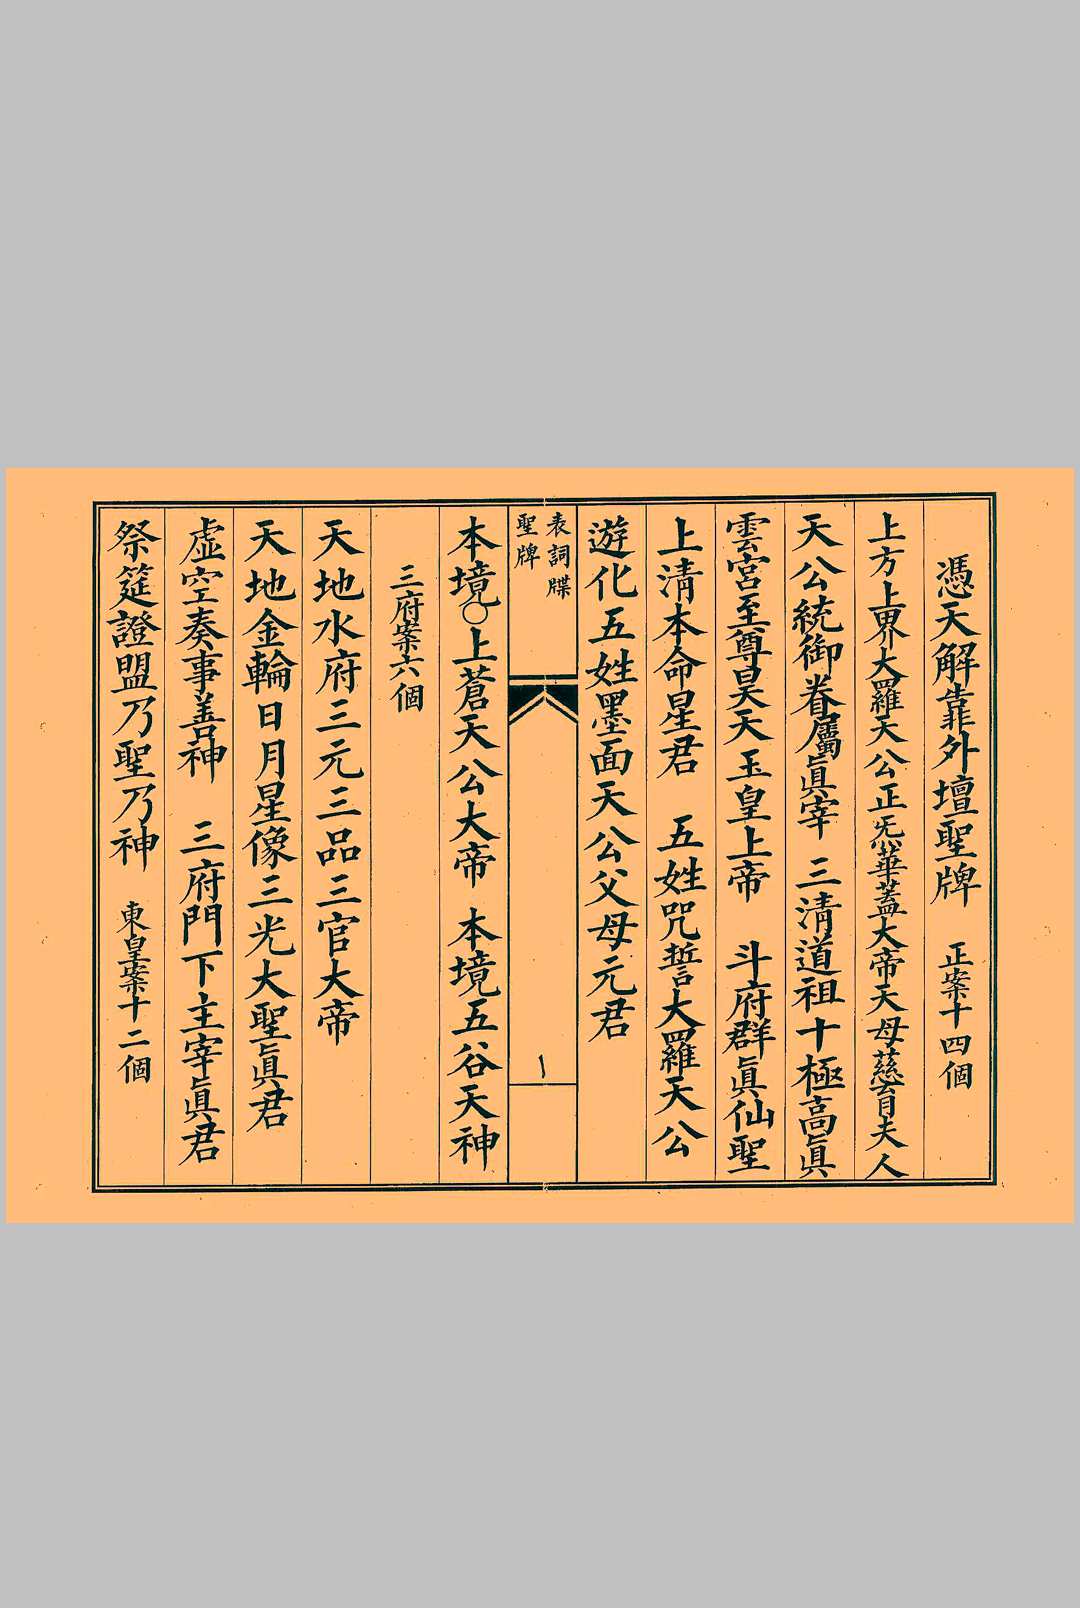 憑天解靠外壇聖牌　正案十四個
上方上界大羅天公正炁華蓋大帝天母慈育夫人
天公統御眷屬眞宰　三清道祖十極高眞
雲宮至尊昊天玉皇上帝　斗府群眞仙聖
上清本命星君　五姓咒誓大羅天公
遊化五姓墨面天公父母元君
表詞牒
聖牌
本境〇上蒼天公大帝　本境五谷天神
三府案六個
天地水府三元三品三官大帝
天地金輪日月星像三光大聖眞君
虛空奏事善神　三府門下主宰眞君
祭筵證盟乃聖乃神　東皇案十二個